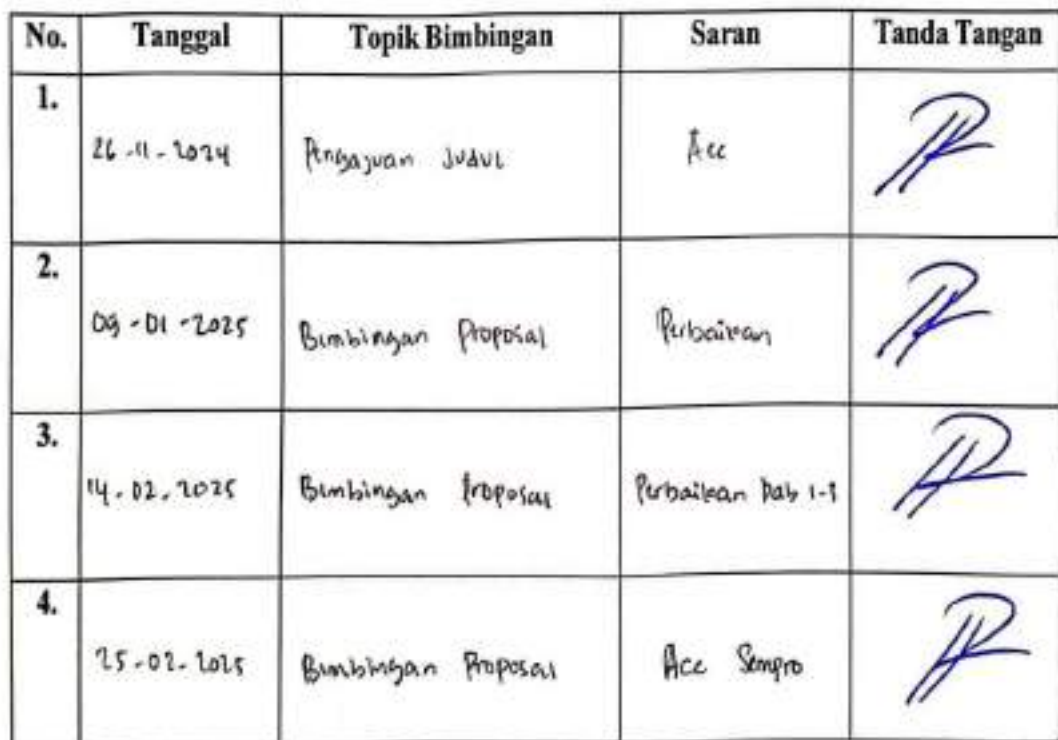 No. Tanggal Topik Bimbingan Saran Tanda Tangan
1. 26-11-2024 Pengajuan Judul Acc
2. 09-01-2025 Bimbingan Proposal Perbaikan
3. 14-02-2025 Bimbingan Proposal Perbaikan bab
4. 25-02-2025 Bimbingan Proposal Acc Sempro